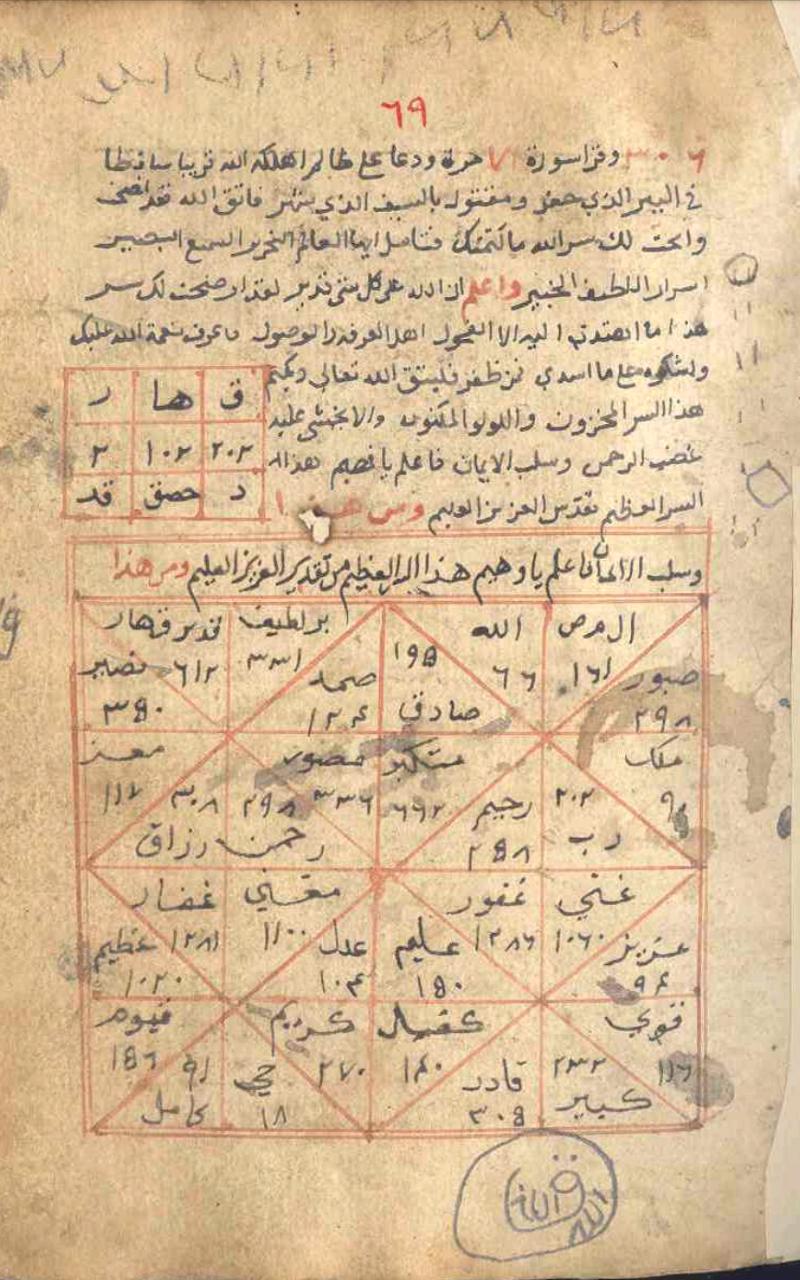 ٦٩
٣٠٦ وقرا سورة ٧١ مرة ودعا على ظالم اهلكه الله قريبا ساقطا
في البير الذي حفر ومقتول بالسيف الذي شهر فاتق الله فقد نصحت
وابحت لك سر الله ما كتمتك فتامل ايها العالم النحرير السميع البصير
اسرار اللطيف الخبير واعلم ان الله على كل شي قدير لقد اوضحت لك سر
هذا ما اهتدي اليه الا الفحول اهل المعرفة والوصول فاعرف نعمة الله عليك
واشكره على ما اسدي فمن ظفر فليتق الله تعالى ويكتم
هذا السر المخزون واللولو المكنون والا يخشى عليه
غضب الرحمن وسلب الايمان فاعلم يا فهيم هذا
السر العظيم تقدير العزيز العليم ومن هذا
ق ها ر
٢٠٢ ١٠٢ ٢
د حصق قد
وسلب الايمان فاعلم يا فهيم هذا السر العظيم من تقدير العزيز العليم ومن هذا
المص الله بر لطيف قدير قهار
صبور ١٦١ ٦٦ ١٩٥ صمد ٣٣١ ٦١٢ نصير
٢٩٨ صادق ١٣٤ ٣٥٠
ملك متكبر مصور معز
٩٠ ٢٠٢ رحيم ٦٦٢ ٣٣٦ ٢٩٨ ٣٠٨ ١١٧
رب ٢٥٨ رحمن رزاق
غني غفور مغني غفار
عزيز ١٠٦٠ ١٢٨٦ عليم عدل ١١٠٠ ١٢٨١ عظيم
٩٤ ١٥٠ ١٠٤ ١٠٢٠
قوي كفيل كريم قيوم
١١٦ ٢٣٢ قادر ١٤٠ ٢٧٠ حي ٩١ ١٥٦
كبير ٣٠٥ ١٨ كامل
الله